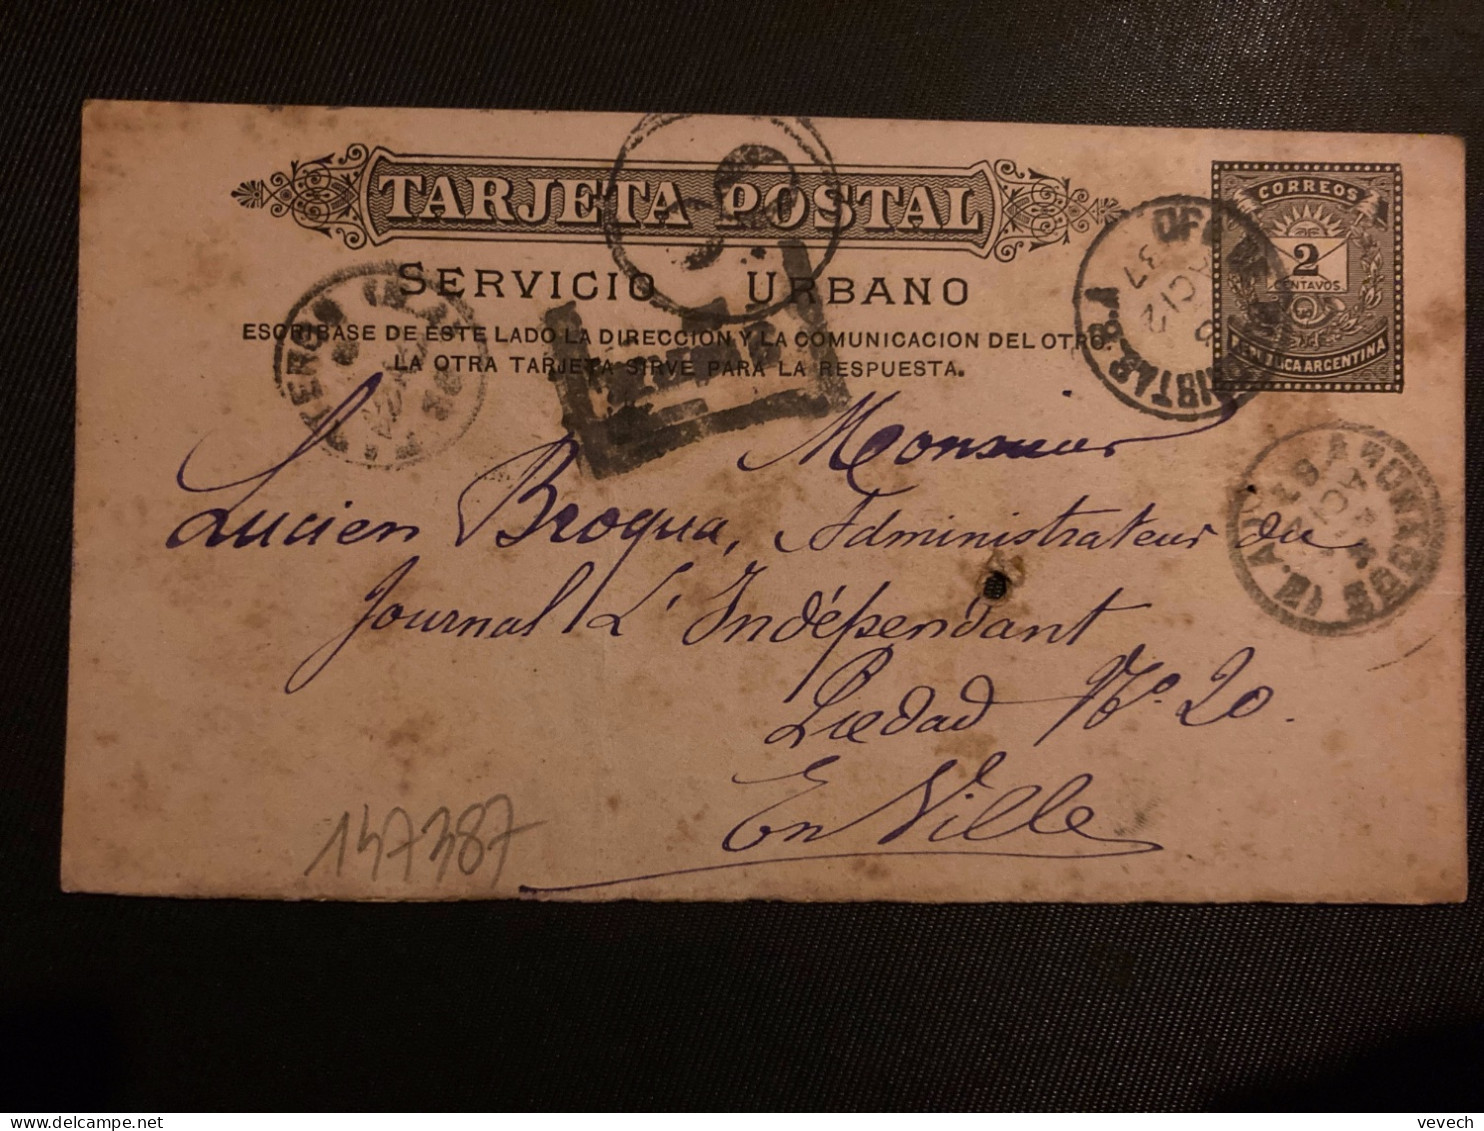 TARJETA POSTAL
CORREOS
2
CENTAVOS
REPUBLICA ARGENTINA
SERVICIO URBANO
ESCRIBASE DE ESTE LADO LA DIRECCION Y LA COMUNICACION DEL OTRO.
LA OTRA TARJETA SIRVE PARA LA RESPUESTA.
Monsieur
Lucien Broqua, Administrateur du
Journal L'Indépendant
Piedad No. 20.
En Ville
147387
vevech